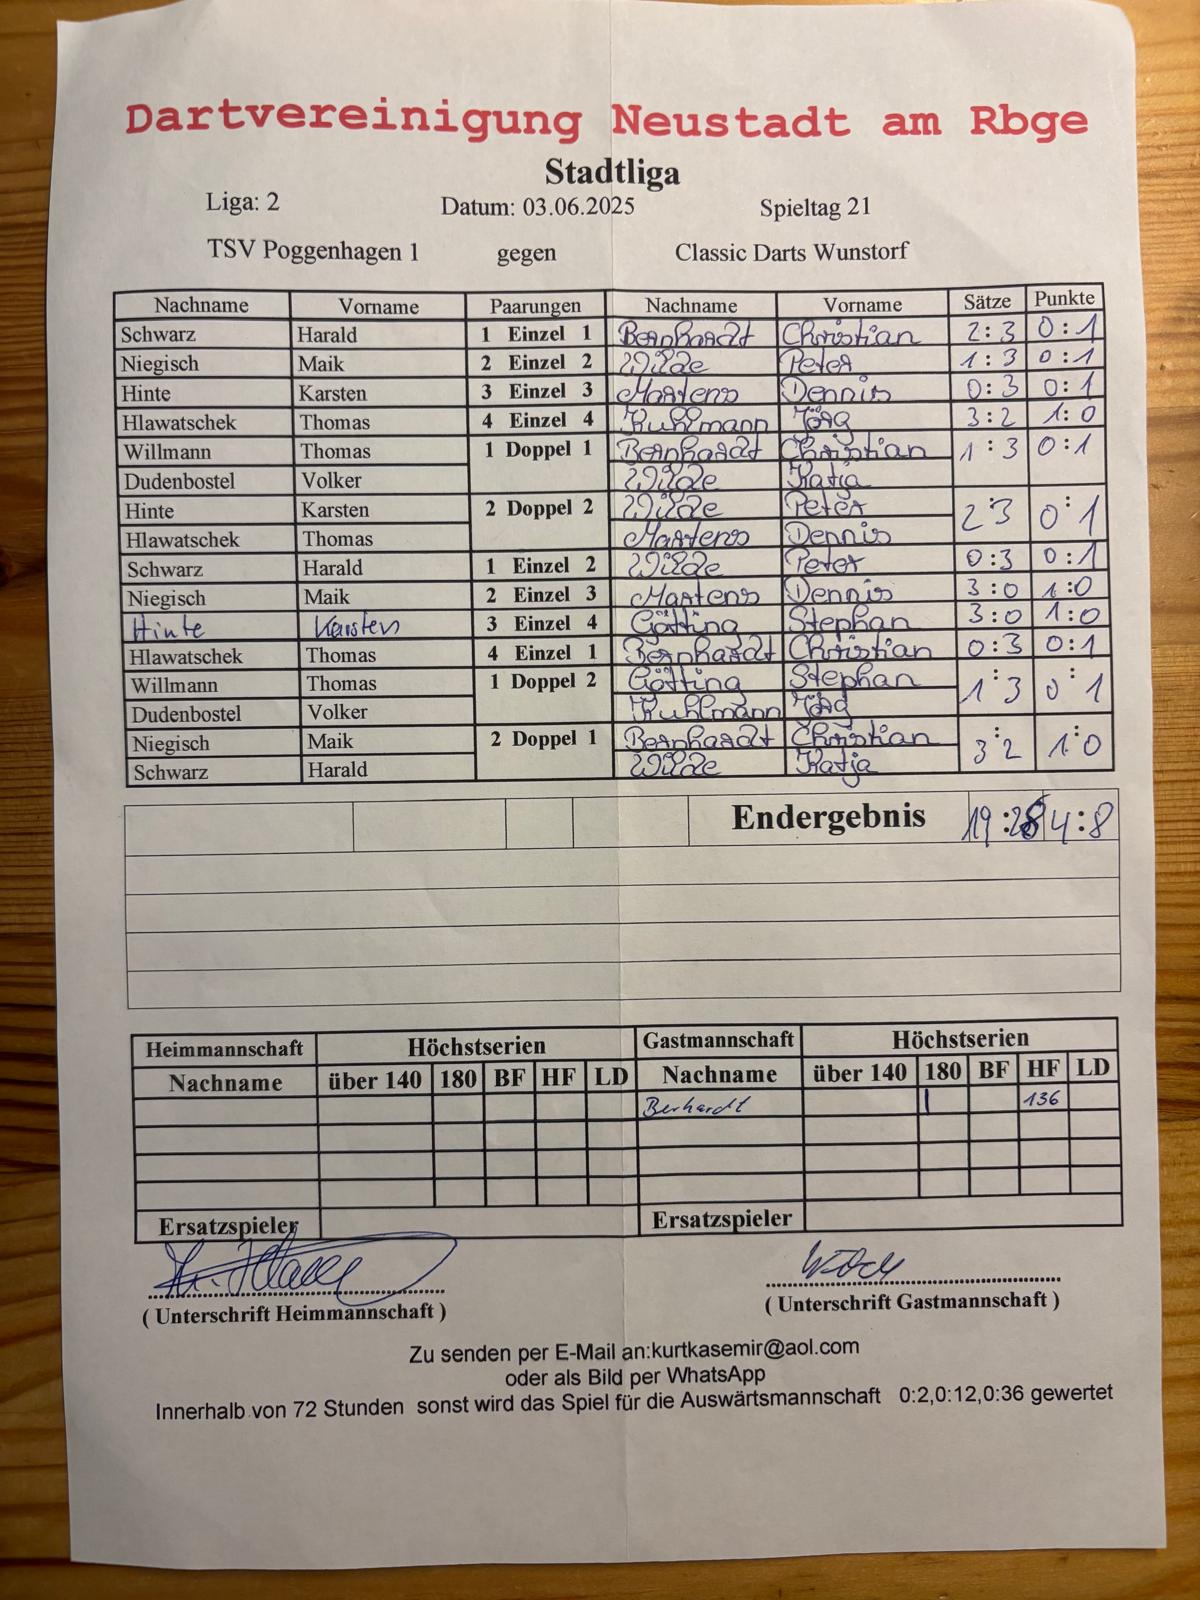 Dartvereinigung Neustadt am Rbge
Stadtliga
Liga: 2 Datum: 03.06.2025 Spieltag 21
TSV Poggenhagen 1 gegen Classic Darts Wunstorf
Nachname Vorname Paarungen Nachname Vorname Sätze Punkte
Schwarz Harald 1 Einzel 1 Bernhardt Christian 2:3 0:1
Niegisch Maik 2 Einzel 2 Wilde Peter 1:3 0:1
Hinte Karsten 3 Einzel 3 Martens Dennis 0:3 0:1
Hlawatschek Thomas 4 Einzel 4 Kuhlmann Jörg 3:2 1:0
Willmann Thomas 1 Doppel 1 Bernhardt Christian 1:3 0:1
Dudenbostel Volker Wilde Katja
Hinte Karsten 2 Doppel 2 Wilde Peter 2:3 0:1
Hlawatschek Thomas Martens Dennis
Schwarz Harald 1 Einzel 2 Wilde Peter 0:3 0:1
Niegisch Maik 2 Einzel 3 Martens Dennis 3:0 1:0
Hinte Karsten 3 Einzel 4 Götting Stephan 3:0 1:0
Hlawatschek Thomas 4 Einzel 1 Bernhardt Christian 0:3 0:1
Willmann Thomas 1 Doppel 2 Götting Stephan 1:3 0:1
Dudenbostel Volker Kuhlmann Jörg
Niegisch Maik 2 Doppel 1 Bernhardt Christian 3:2 1:0
Schwarz Harald Wilde Katja
Endergebnis 19:28 4:8
Heimmannschaft Höchstserien Gastmannschaft Höchstserien
Nachname über 140 180 BF HF LD Nachname über 140 180 BF HF LD
Berhardt | 136
Ersatzspieler Ersatzspieler
( Unterschrift Heimmannschaft ) ( Unterschrift Gastmannschaft )
Zu senden per E-Mail an:kurtkasemir@aol.com
oder als Bild per WhatsApp
Innerhalb von 72 Stunden sonst wird das Spiel für die Auswärtsmannschaft 0:2,0:12,0:36 gewertet